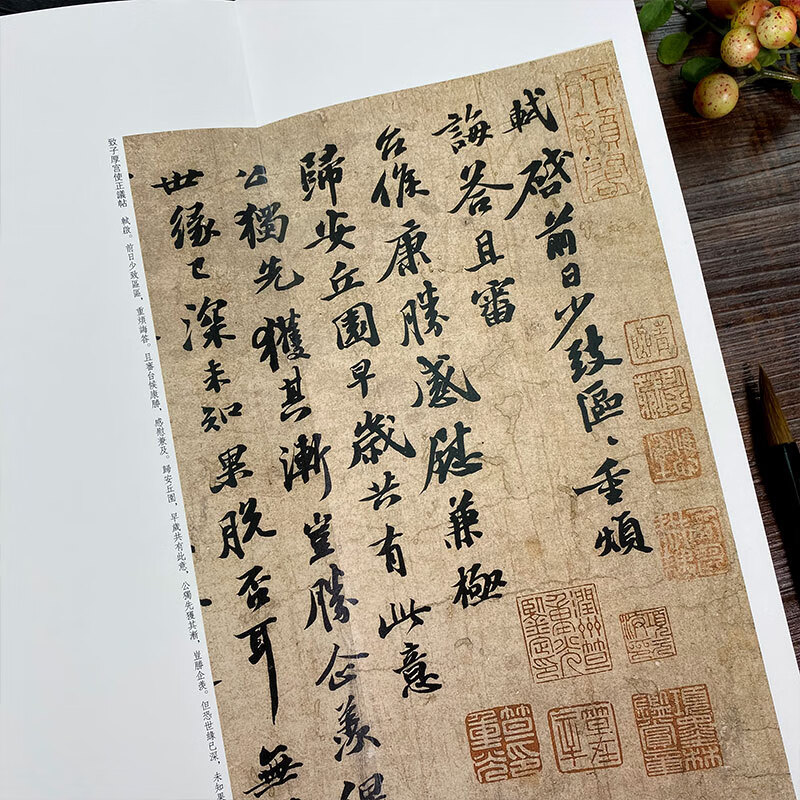 軾啓前日少致區〻重煩
誨答且審
台候康勝感慰兼極
歸安丘園早歲共有此意
公獨先獲其漸豈勝企羨但
世緣已深未知果脫否耳無
致子厚宮使正議帖　軾啟。前日少致區區，重煩誨答。且審台候康勝，感慰兼及。歸安丘園，早歲共有此意，公獨先獲其漸，豈勝企羨。但恐世緣已深，未知果